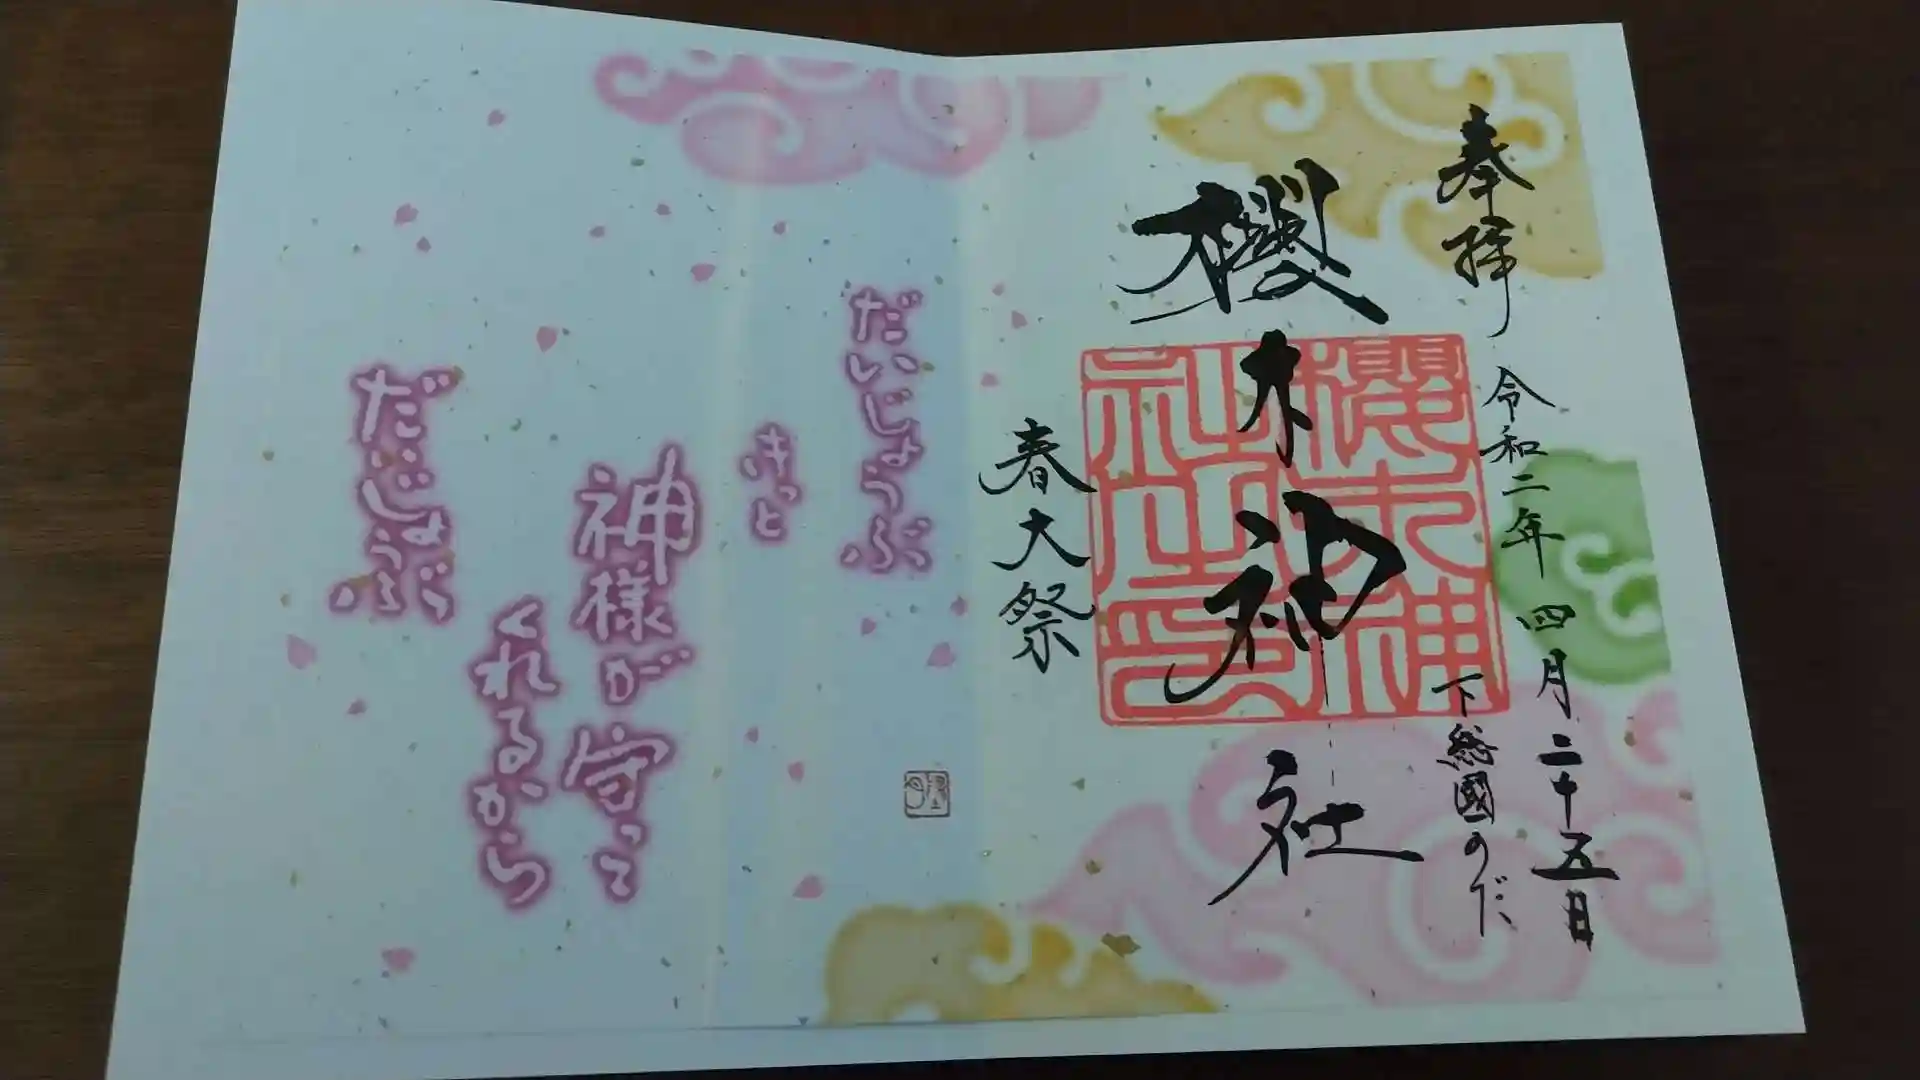 奉拝
令和二年四月二十五日
下総國のだ
櫻木神社
櫻木神社之印
春大祭
だいじょうぶ
きっと
神様が守って
くれるから
だいじょうぶ